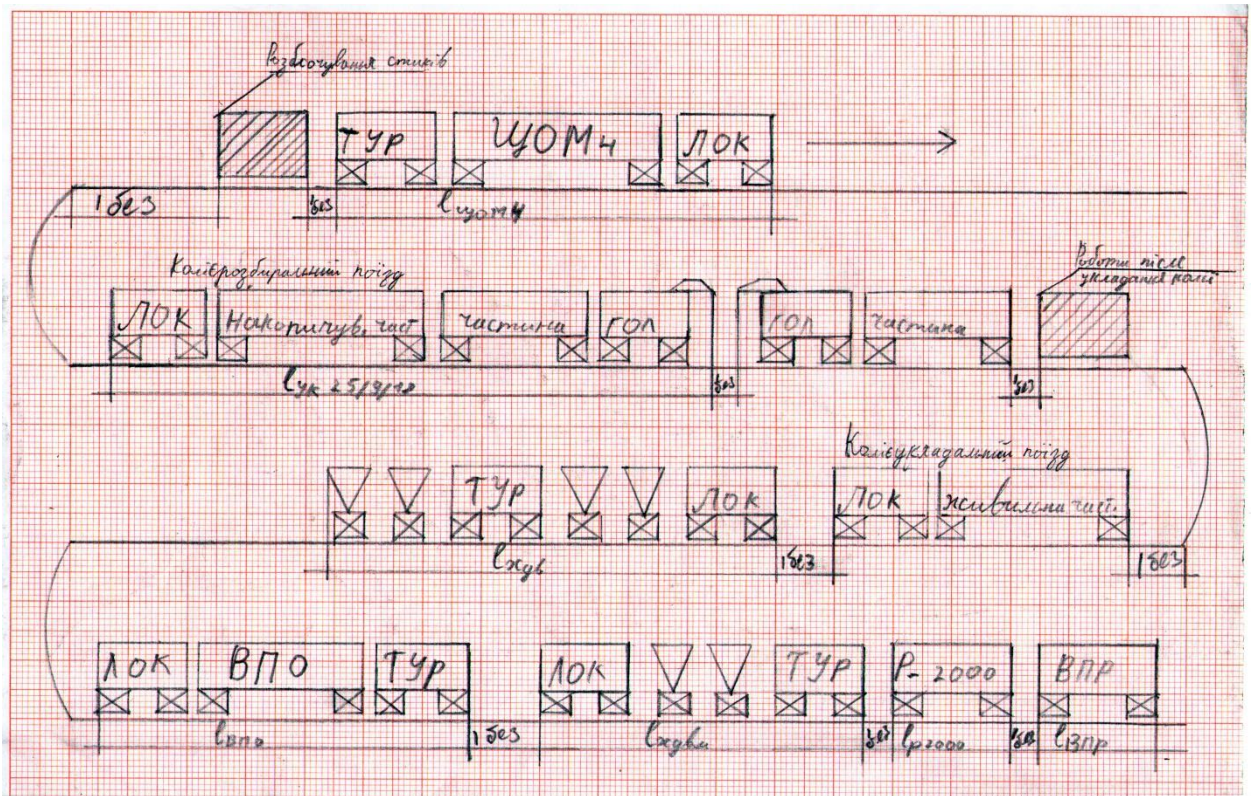 Розболчування стиків
ТУР ЩОМ4 ЛОК
lбез lбез lщом4
Колієрозбиральний поїзд
Роботи після
укладання колії
ЛОК Накопичув. част частина ГОЛ ГОЛ частина
lук 25/9/18 lбез lбез
Колієукладальний поїзд
ТУР ЛОК ЛОК живильна част.
lхдв lбез lбез
ЛОК ВПО ТУР ЛОК ТУР Р-2000 ВПР
lвпо lбез lхдвм lбез lр2000 lбез lВпр